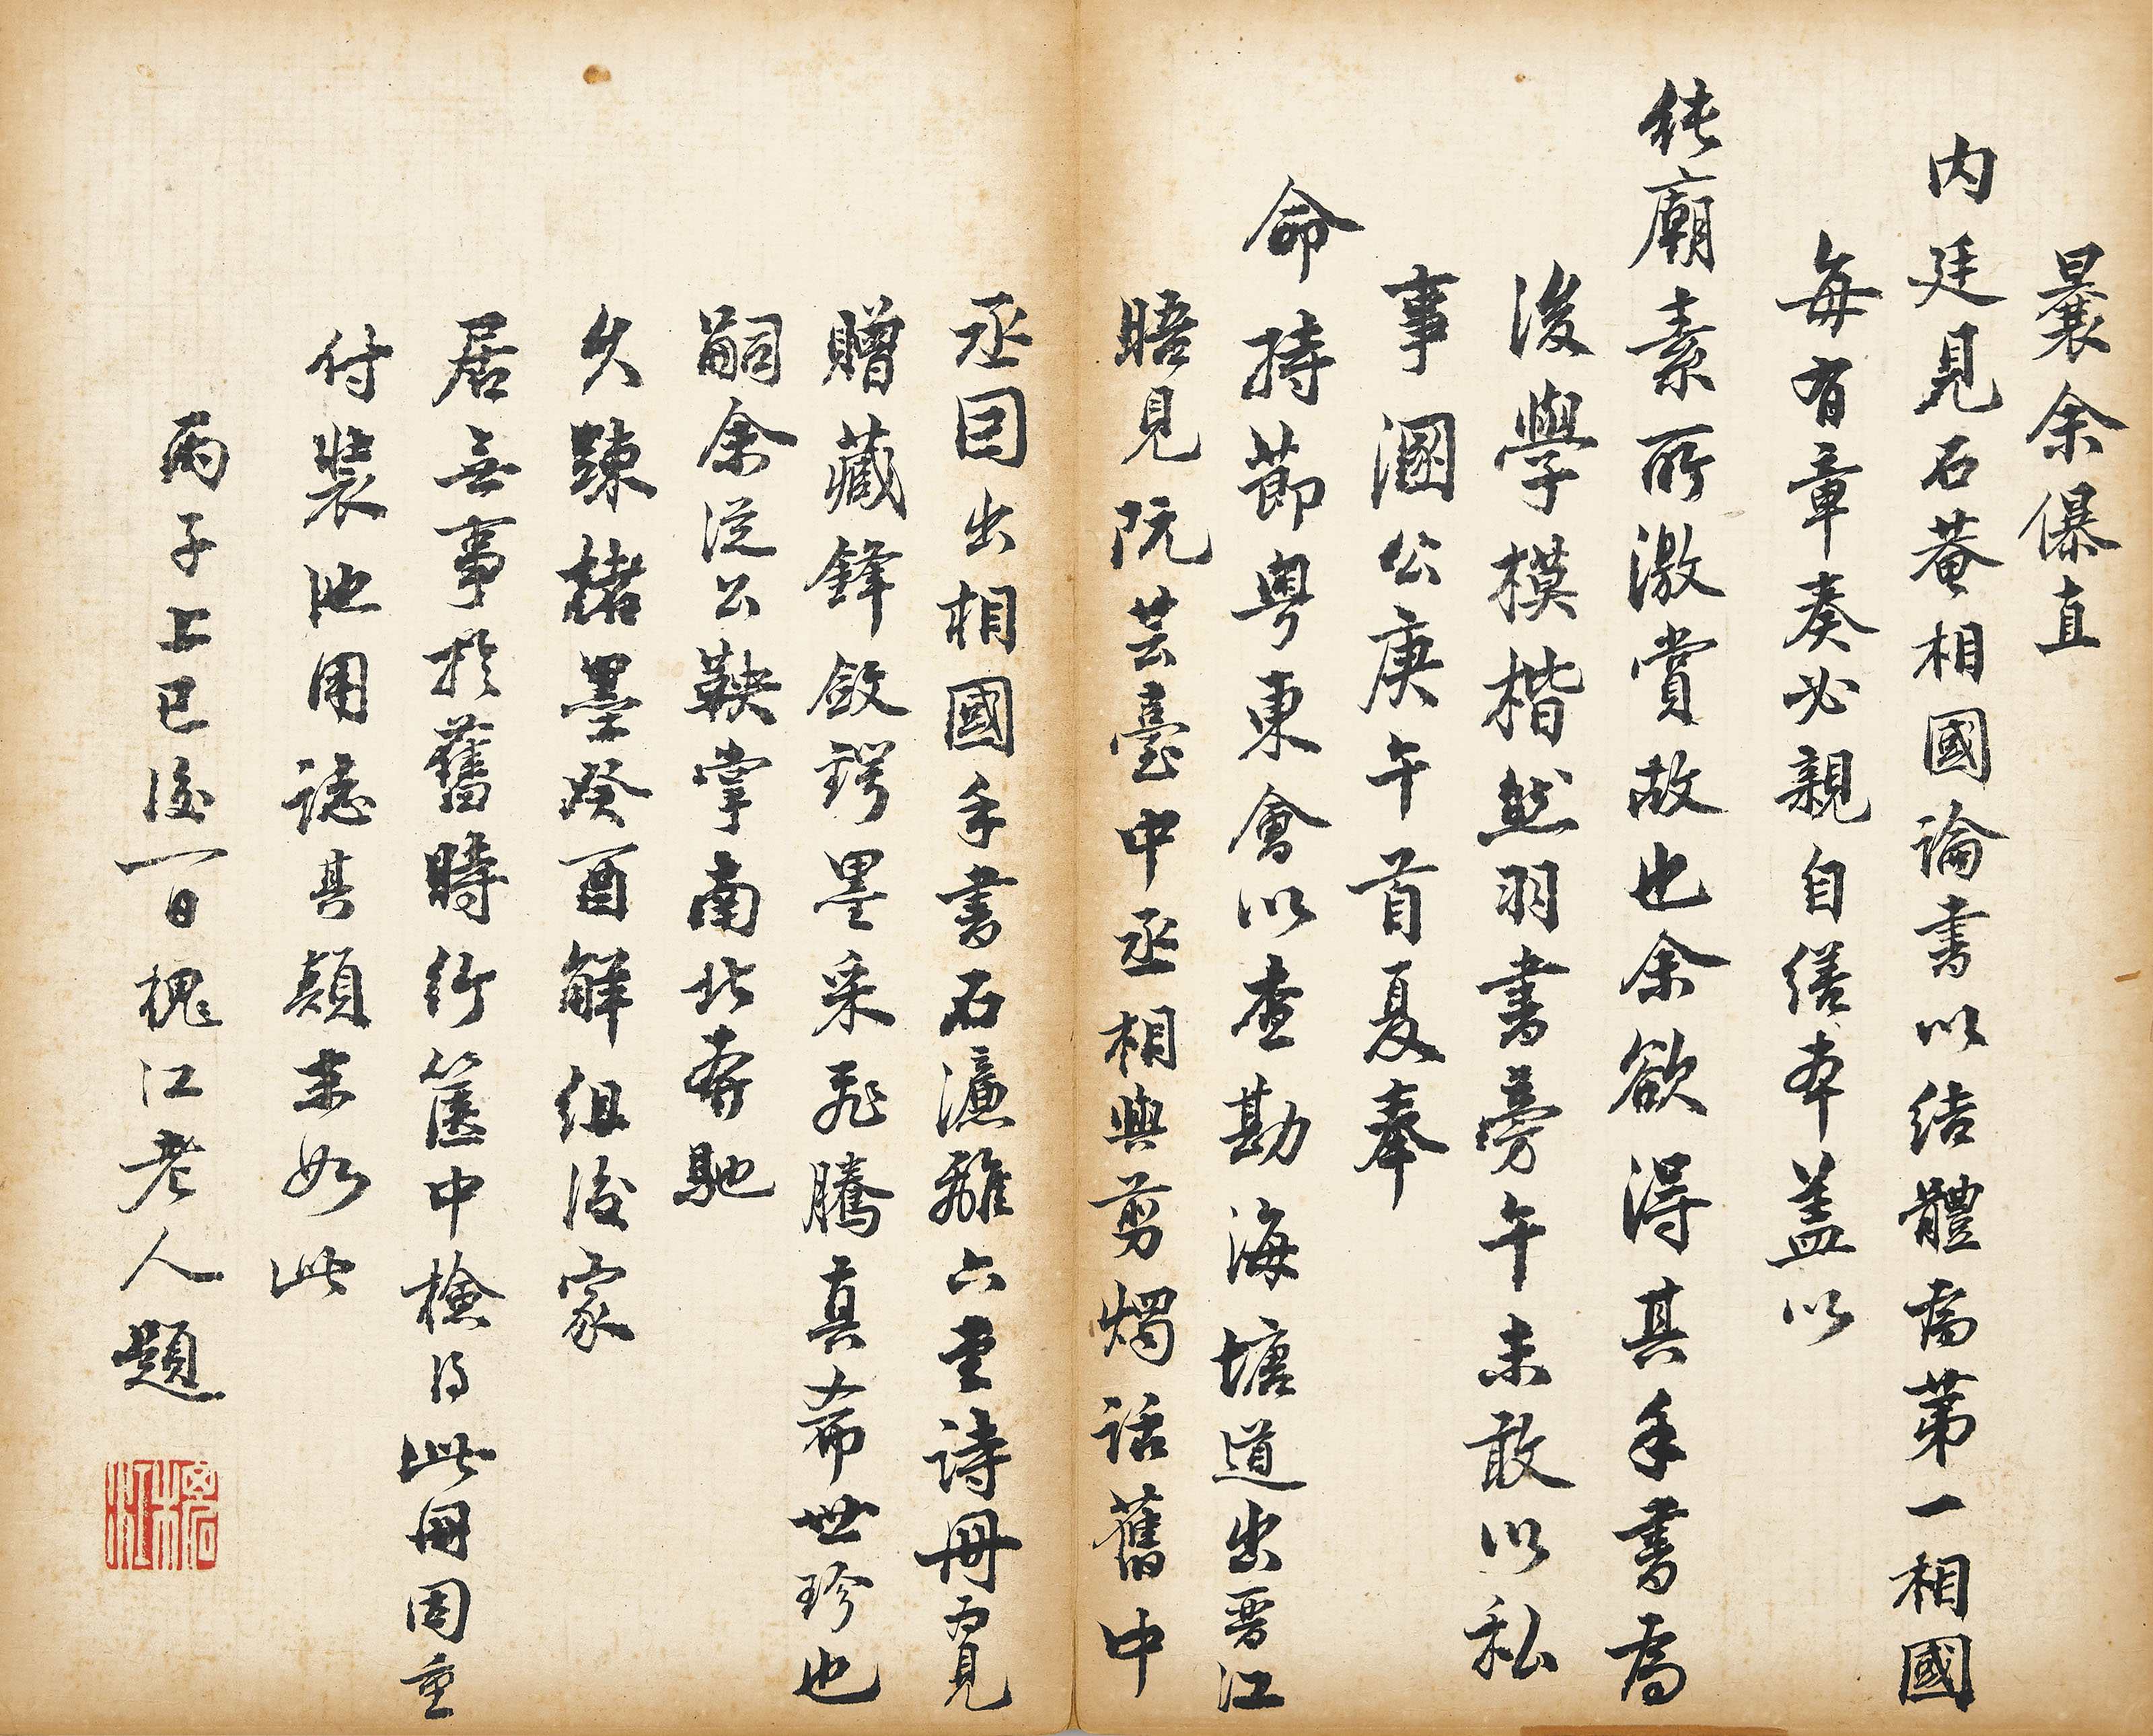 曩余儤直
内廷見石菴相國論書以結體為第一相國
每有章奏必親自繕本蓋以
純廟素所激賞故也余欲得其手書為
後學模楷然羽書旁午未敢以私
事溷公庚午首夏奉
命持節粵東會以查勘海塘道出晋江
晤見阮芸臺中丞相與剪燭話舊中
丞因出相國手書石濂離六堂詩冊覓
贈藏鋒斂鍔墨采飛騰真希世珍也
嗣余從公鞅掌南北奔馳
久踈楮墨癸酉解組後家
居無事於舊時行篋中檢得此冊因重
付裝池用誌其顛末如此
丙子上巳後一日槐江老人題
槐江